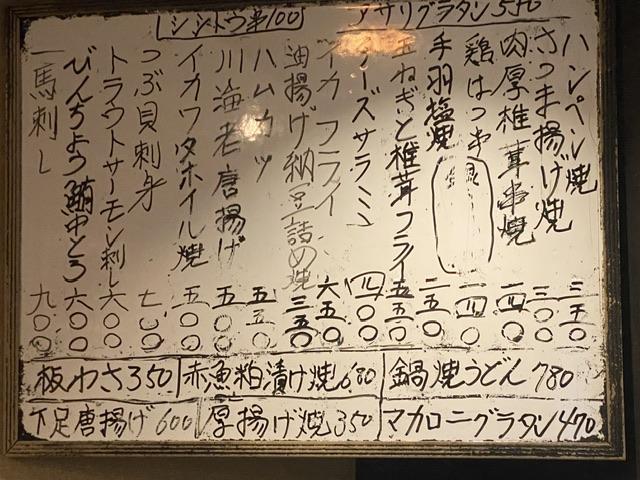 シシトウ串100
アサリグラタン550
ハンペン焼 三五〇
さつま揚げ焼 三〇〇
肉厚椎茸串焼 一四〇
鶏はつ串 一四〇
手羽塩焼 二五〇
玉ねぎと椎茸フライ 五五〇
チーズサラミ 四〇〇
イカフライ 六五〇
油揚げ納豆詰め焼 三五〇
ハムカツ 五五〇
川海老唐揚げ 五〇〇
イカワタホイル焼 五〇〇
つぶ貝刺身 七〇〇
トラウトサーモン刺し 六〇〇
びんちょう鮪中とろ 六〇〇
馬刺し 九〇〇
鍋焼うどん 780
赤魚粕漬け焼 680
板わさ 350
マカロニグラタン 470
厚揚げ焼 350
下足唐揚げ 600